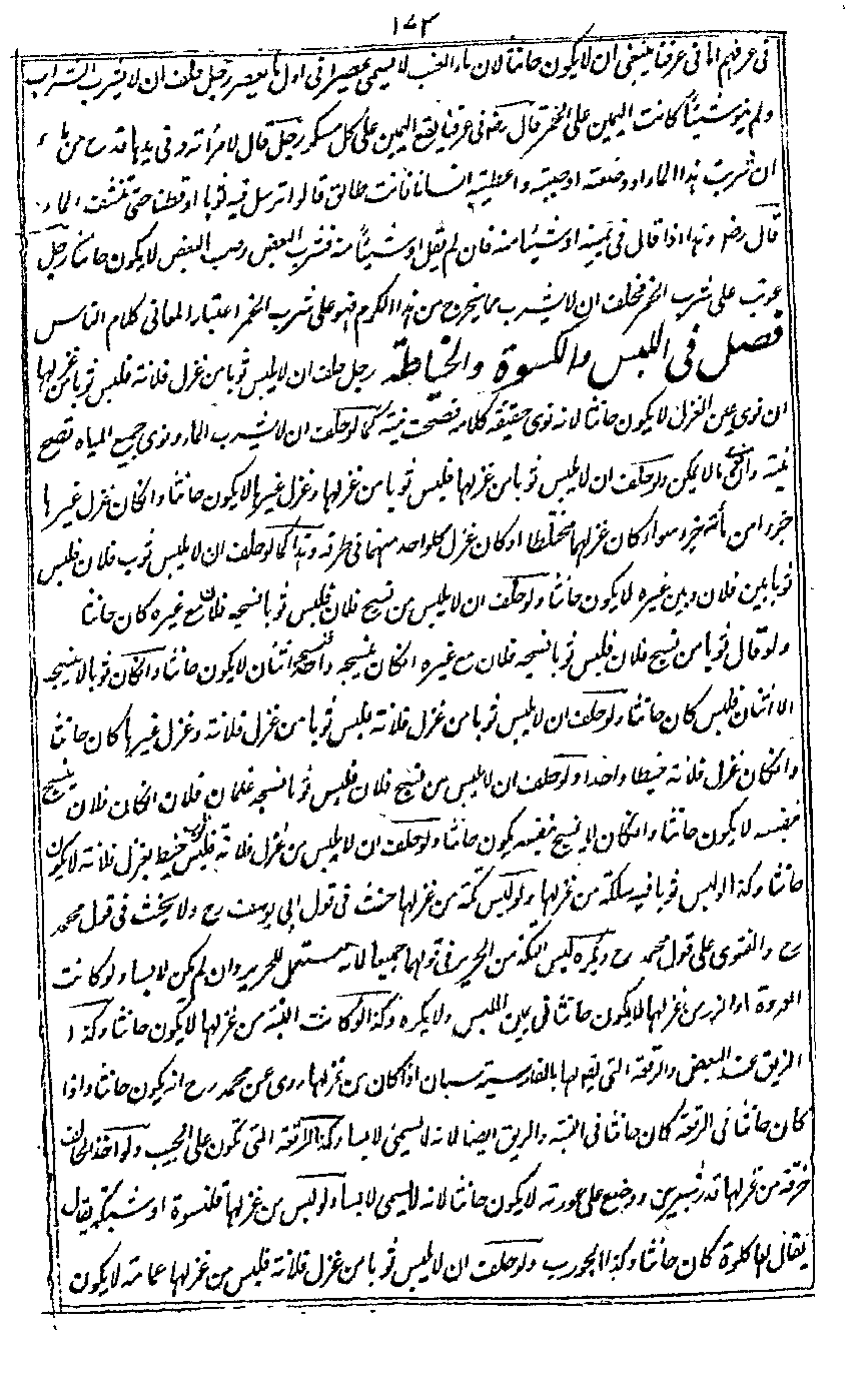 ١٧٢
فى عرفهم اما فى عرفنا ينبغى ان لا يكون حانثا لان ماء العنب لا يسمى عصيرا فى اول ما يعصر رجل حلف ان لا يشرب الشراب
ولم ينو شيئا كانت اليمين على الخمر قال رضـ فى عرفنا يقع اليمين على كل مسكر رجل قال لامرأته و فى يدها قدح من ماء
ان شربت هذا الماء او وضعته او صببته و اعطيته انسانا فانت طالق قالوا ترسل فيه ثوبا او قطنا حتى تنشف الماء
قال رضـ و هذا اذا قال فى يمينه او شيئا منه فان لم يقل او شيئا منه فشرب البعض وصب البعض لا يكون حانثا رجل
عوتب على شرب الخمر فحلف ان لا يشرب مما يخرج من هذا الكرم فهو على شرب الخمر اعتبار المعانى كلام الناس
فصل فى اللبس والكسوة والخياطة رجل حلف ان لا يلبس ثوبا من غزل فلانة فلبس ثوبا من غزلها
ان نوى عين الغزل لا يكون حانثا لانه نوى حقيقة كلامه فصحت نيته كما لو حلف ان لا يشرب الماء ونوى جميع المياه تصح
نيته وان بما لا يمكن ولو حلف ان لا يلبس ثوبا من غزلها فلبس ثوبا من غزلها وغزل غيرها لا يكون حانثا وان كان غزل غيرها
جزءا من مأته جزء سواء كان غزلهما مختلطا او كان غزل كل واحد منهما فى طرف وهذا كما لو حلف ان لا يلبس ثوب فلان فلبس
ثوبا بين فلان وبين غيره لا يكون حانثا ولو حلف ان لا يلبس من نسيج فلان فلبس ثوبا نسجه فلان مع غيره كان حانثا
ولو قال ثوبا من نسيج فلان فلبس ثوبا نسجه فلان مع غيره ان كان ينسجه واحد فنسجه اثنان لا يكون حانثا وان كان ثوبا لا ينسجه
الا اثنان فلبس كان حانثا ولو حلف ان لا يلبس ثوبا من غزل فلانة فلبس ثوبا من غزل فلانة وغزل غيرها كان حانثا
وان كان غزل فلانة خيطا واحدا ولو حلف ان لا يلبس من نسيج فلان فلبس ثوبا نسجه غلمان فلان ان كان فلان ينسج
بنفسه لا يكون حانثا وان كان لا ينسج بنفسه يكون حانثا ولو حلف ان لا يلبس من غزل فلانة فلبس خيط بغزل فلانة لا يكون
حانثا وكذا لو لبس ثوبا فيه سلكة من غزلها ولو لبس تكة من غزلها حنث فى قول ابى يوسف رح ولا يحنث فى قول محمد
رح والفتوى على قول محمد رح ويكره لبس التكة من الحرير فى قولهما جميعا لانه مستعمل للحرير وان لم يكن لابسا ولو كانت
العروة او الزر من غزلها لا يكون حانثا فى يمين اللبس ولا يكره وكذا لو كانت اللبنة من غزلها لا يكون حانثا وكذا
الزيق عند البعض والرقعة التى يقولها بالفارسية سبان اذا كان من غزلها روى عن محمد رح انه يكون حانثا واذا
كان حانثا فى الرقعة كان حانثا فى اللبنة والزيق ايضا لانه لا يسمى لابسا وكذا الرقعة التى تكون على الجيب ولو اخذ الحالف
خرقة من غزلها قدر شبرين ووضع على عورته لا يكون حانثا لانه لا يسمى لابسا ولو لبس من غزلها قلنسوة او شبكة يقال
يقال لها كلوة كان حانثا وكذا الجورب ولو حلف ان لا يلبس ثوبا من غزل فلانة فلبس من غزلها عمامة لا يكون